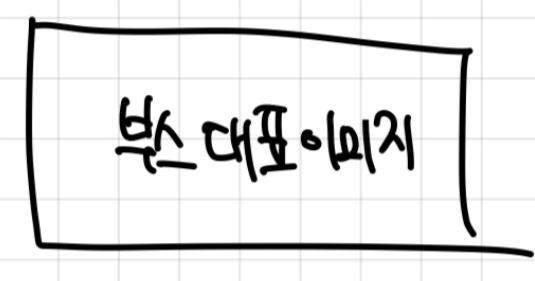 부스 대표 이미지